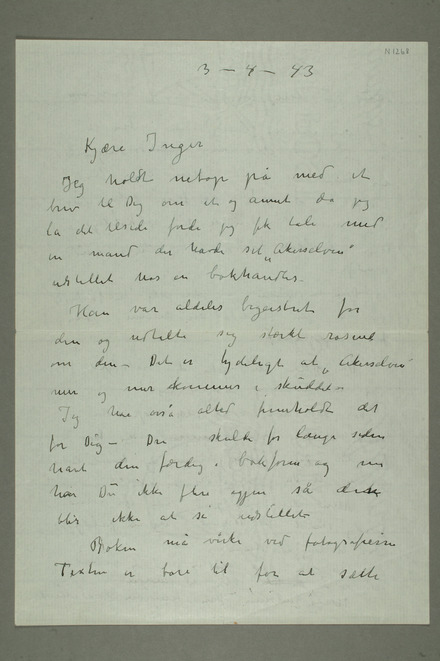 N 1268
3 – 4 – 43
Kjære Inger
Jeg holdt netop på med et
brev til Dig om et og annet da jeg
la det tilside fordi jeg fik tale med
en mand der havde set „Akerselven"
udstillet hos en bokhandler.
Han var aldeles begeistret for
den og udtalte sig stærkt rosende
om den – Det er tydeligt at „Akerselven
mer og mer kommer i skuddet –
Jeg har også altid fremholdt det
for Dig – Du skulde for længe siden
havt den færdig i bokform og nu
har Du ikke flere igjen så
blir ikke at se udstillet –
Boken må virke ved fotografierne
Texten er bare til for at sætte